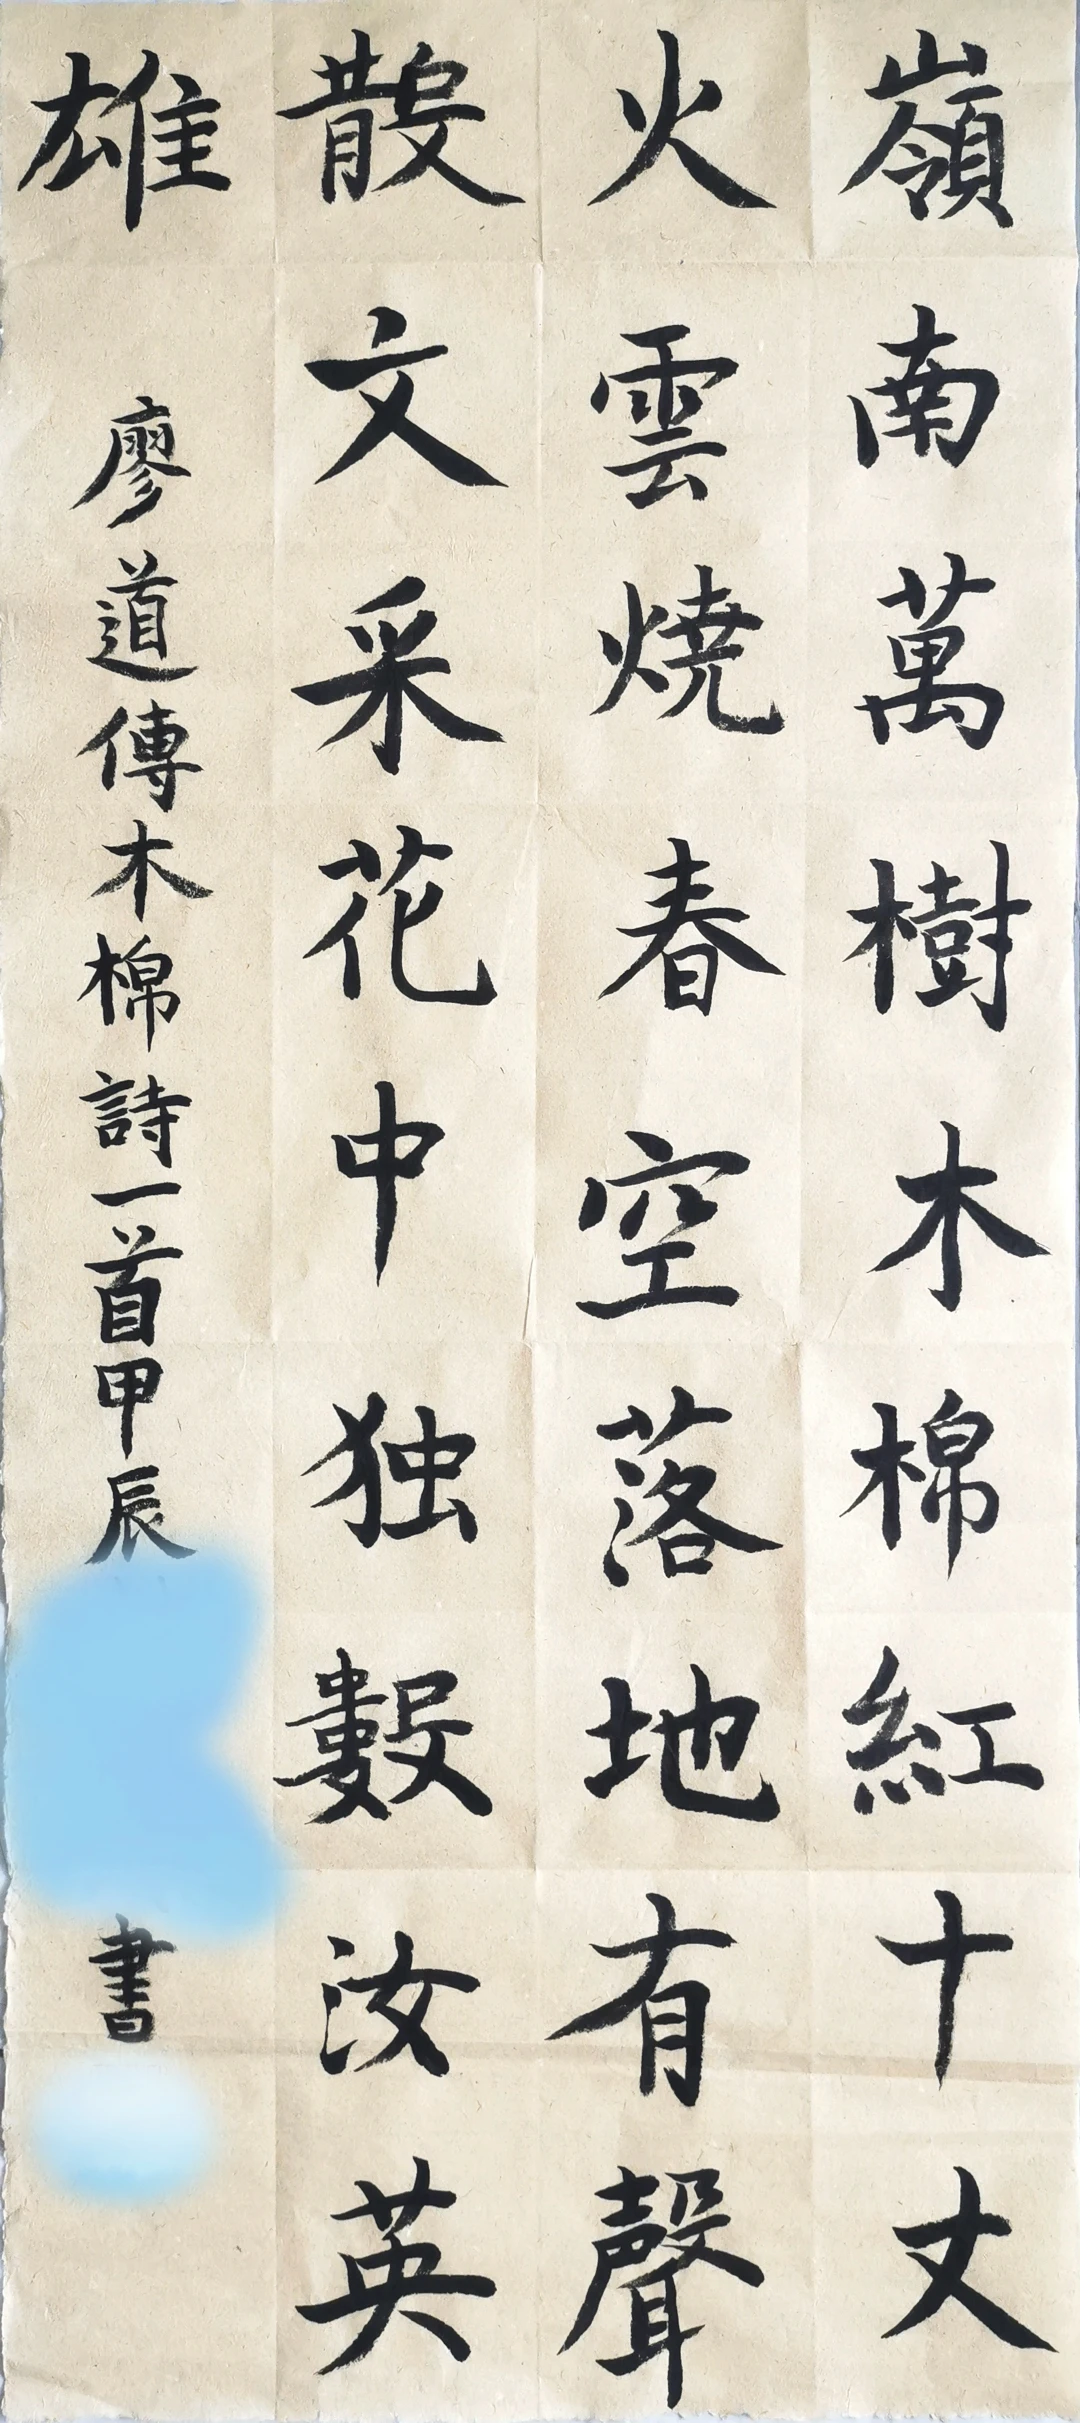 嶺南萬樹木棉紅十丈
火雲焼春空落地有聲
散文采花中独數汝英
雄
廖道傳木棉詩一首甲辰
書